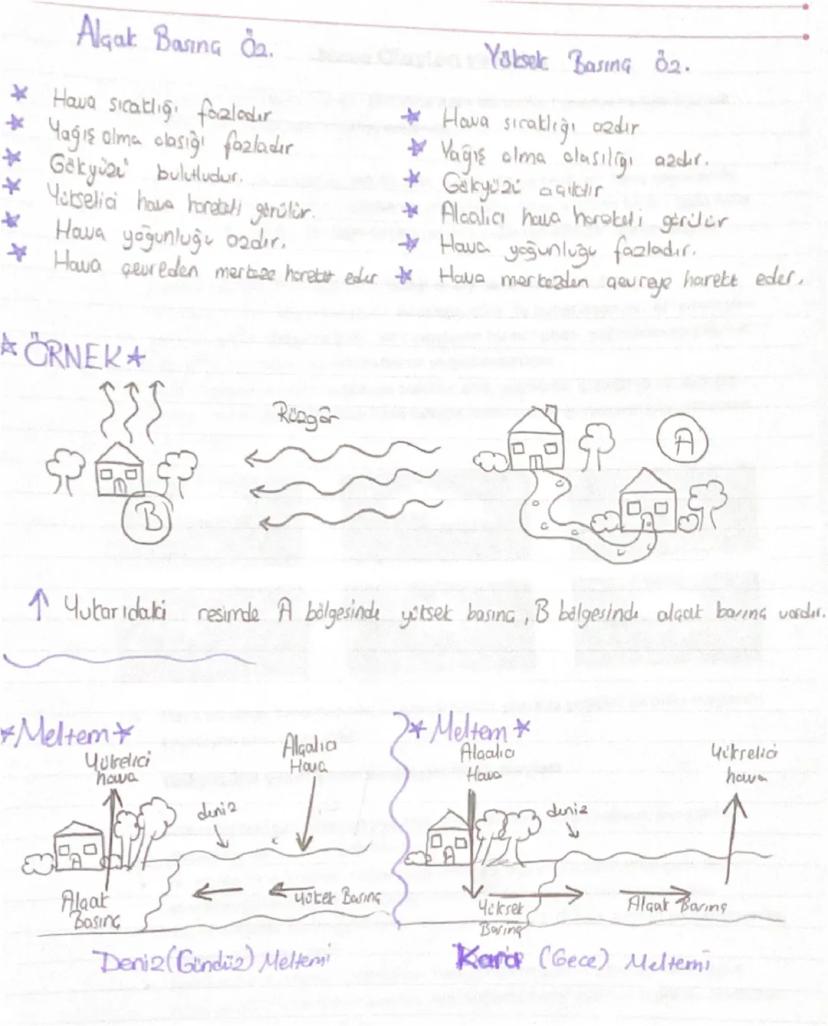 Alçak Basınç Öz.
Hava sıcaklığı fazladır
Yağış olma olasığı fazladır
Gökyüzü bulutludur.
Yükselici hava hareketi görülür.
Hava yoğunluğu azdır.
Hava çevreden merkeze hareket eder
Yüksek Basınç Öz.
Hava sıcaklığı azdır
Yağış olma olasılığı azdır.
Gökyüzü açıktır
Alçalıcı hava hareketi görülür
Hava yoğunluğu fazladır.
Hava merkezden çevreye hareket eder.
ÖRNEK
Rüzgâr
A
B
↑ Yukarıdaki resimde A bölgesinde yüksek basınç, B bölgesinde alçak basınç vardır.
Meltem
Yükselici
hava
Alçalıcı
Hava
deniz
Alçak
Basınç
Yüksek Basınç
Deniz (Gündüz) Meltemi
Meltem
Alçalıcı
Hava
Yükselici
hava
deniz
Yüksek
Basınç
Alçak Basınç
Kara (Gece) Meltemi